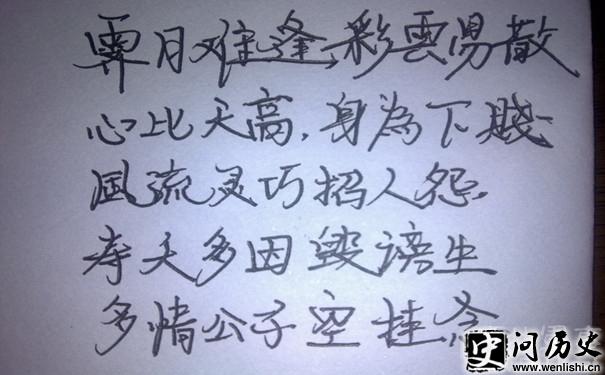 霁月难逢,彩雲易散
心比天高,身為下賤
風流灵巧招人怨.
寿夭多因毁謗生
多情公子空挂念
史问历史
www.wenlishi.cn